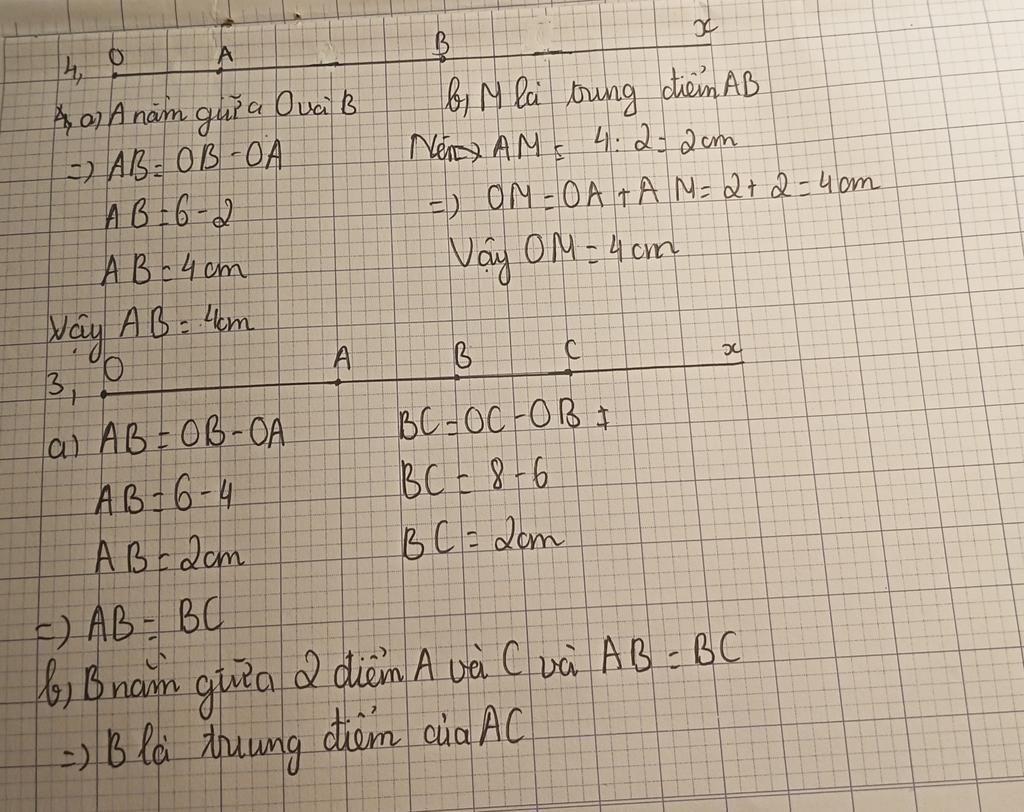 4, O A B x
a) A nằm giữa O và B
=) AB = OB - OA
AB = 6 - 2
AB = 4 cm
Vậy AB = 4cm
b, M là trung điểm AB
Nên => AM = 4 : 2 = 2 cm
=) OM = OA + AM = 2 + 2 = 4 cm
Vậy OM = 4 cm
3, O A B C x
a) AB = OB - OA
AB = 6 - 4
AB = 2cm
BC = OC - OB
BC = 8 - 6
BC = 2cm
=) AB = BC
b, B nằm giữa 2 điểm A và C và AB = BC
=) B là truung điểm của AC